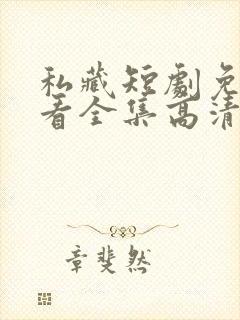 私藏短剧免
看全集高清
章斐然